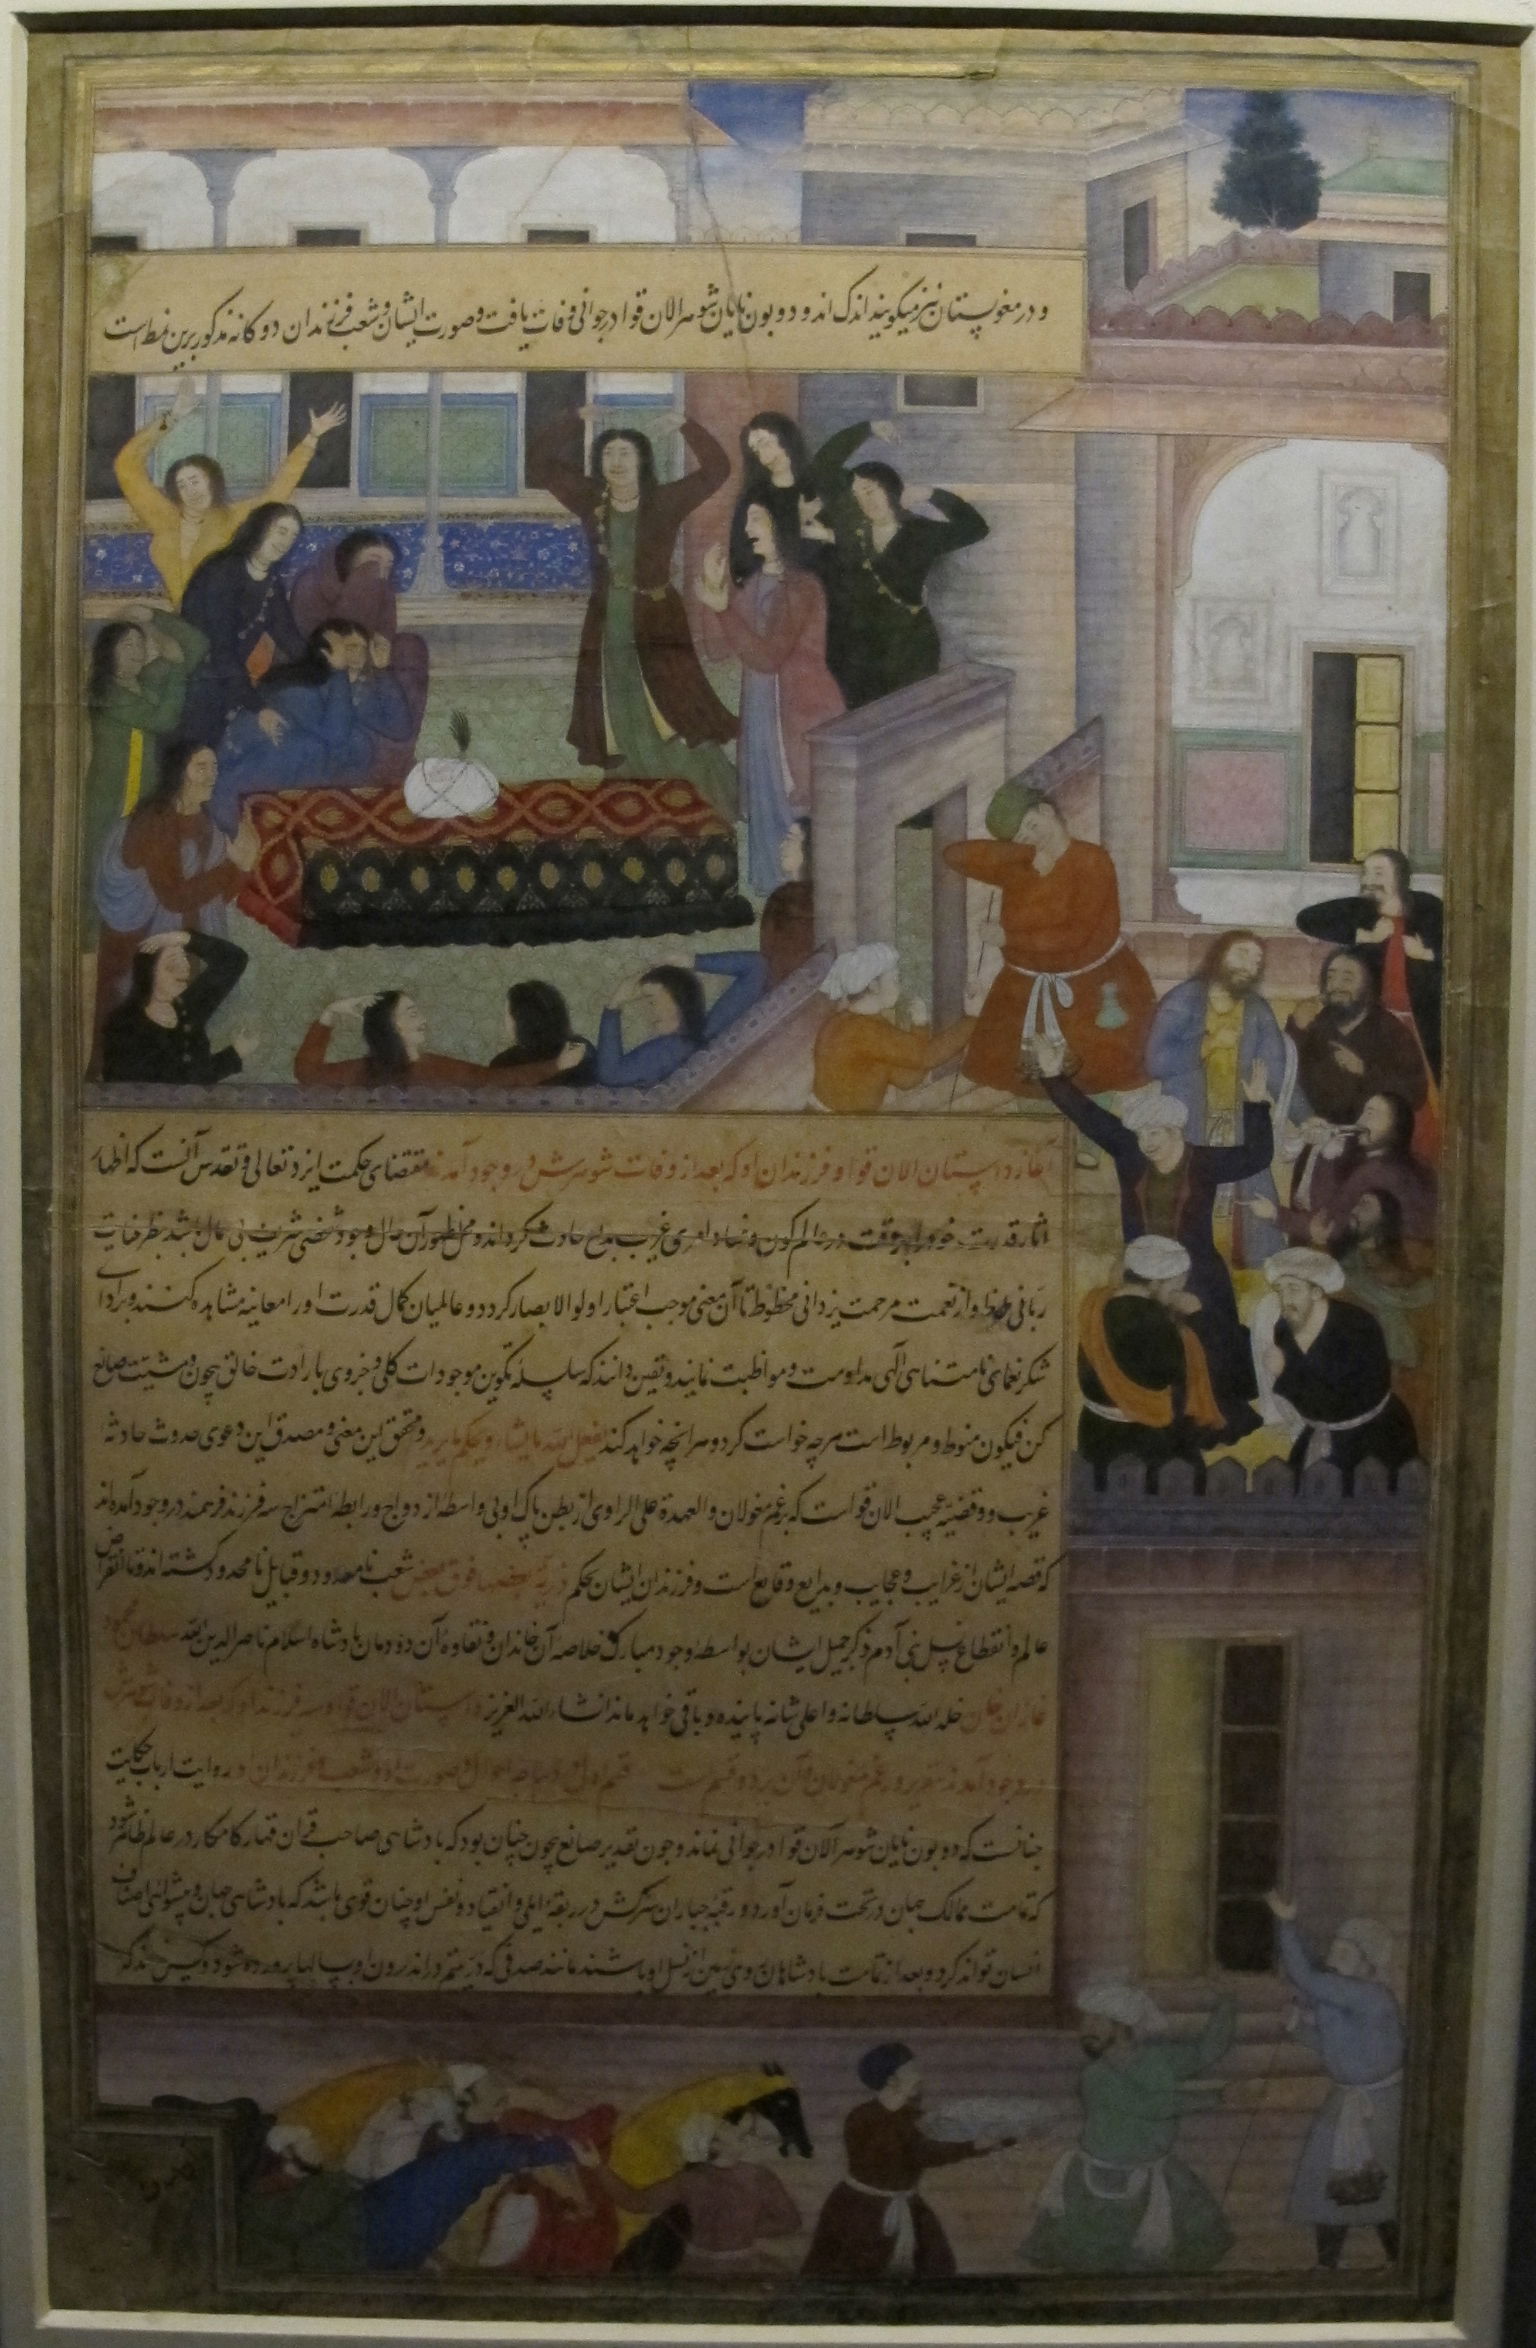 و در مغولستان نیز میکویند اندک اند و دوبون بایان شوهر الان قوا در جوانی وفات یافت و صورت ایشان و شعب فرزندان دوکانه مذکور برین نمط است
آغاز داستان الان قوا و فرزندان او که بعد از وفات شوهرش در وجود آمدند مقتضای حکمت ایزد تعالی و تقدس آنست که اظهار
آثار قدرت خود را بهر وقت در عالم کون و فساد امری غریب بدیع حادث کرداند و محل ظهور آن حال وجود شخصی شریف بی همال باشد بنظر عنایت
ربانی ملحوظ و از نعمت مرحمت یزدانی محظوظ تا آن معنی موجب اعتبار اولوالابصار کردد و عالمیان کمال قدرت او را معاینه مشاهده کنند و برادای
شکر نعمای نامتناهی الهی مداومت و مواظبت نمایند و یقین دانند که سلسله تکوین موجودات کلی و جزوی بارادت خالق بیچون و مشیت صانع
کن فیکون منوط و مربوط است هرچه خواست کرد و هرانچه خواهد کند یفعل الله ما یشاء و یحکم ما یرید و محقق این معنی و مصدق این دعوی حدوث حادثه
غریب و وقضیه عجیب الان قواست که بزعم مغولان والعهدة علی الراوی از بطن پاک او بی واسطه ازدواج و رابطه امتزاج سه فرزند فرهمند در وجود آمده اند
که قصه ایشان از غرایب و عجایب و بدایع وقایع است و فرزندان ایشان بحکم ذریة بعضها فوق بعض شعب نامعدود و قبایل نامحدود کشته اند و تا انقراض
عالم و انقطاع نسل بنی آدم ذکر جمیل ایشان بواسطه وجود مبارک خلاصه آن خاندان و نقاوه آن دودمان پادشاه اسلام ناصر الدین الله سلطان محمود
غازان خان خلد الله سلطانه و اعلی شانه پاینده و باقی خواهد ماند انشاء الله العزیز داستان الان قوا و سه فرزند او که بعد از وفات شوهرش
در وجود آمدند بتقریر و زعم مغولان و آن بر دو قسم است قسم اول در دیباجه احوال و صورت او و شعب فرزندان او روایت ارباب حکایت
جنانست که دوبون بایان شوهر آلان قوا در جوانی نماند و جون تقدیر صانع بیچون چنان بود که پادشاهی صاحب قران قهار کامکار در عالم ظاهر شود
که تمامت ممالک جهان در تحت فرمان آورد و رقبه جباران سرکش در ربقه ایلی و انقیاد و نفس او چنان قوی باشد که پادشاهی جهان و پیشوائی اصناف
انسان تواند کرد و بعد از تمامت پادشاهان روی زمین از نسل او باشند مانند صدفی که در یتیم در اندرون او سالها پرورده شود و کسی نداند که